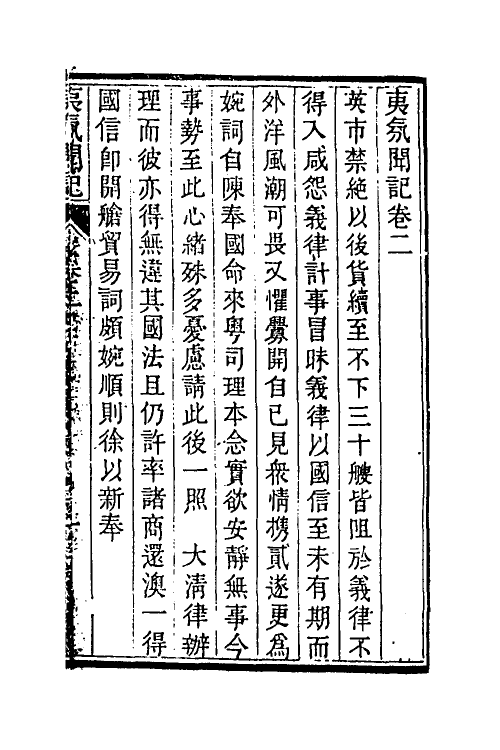 夷氛聞記卷二
英市禁絶以後貨續至不下三十艘皆阻於義律不
得入咸怨義律計事冒昧義律以國信至未有期而
外洋風潮可畏又懼釁開自已見衆情携貳遂更爲
婉詞自陳奉國命來粤司理本念實欲安靜無事今
事勢至此心緒殊多憂慮請此後一照　大清律辦
理而彼亦得無違其國法且仍許率諸商還澳一得
國信卽開艙貿易詞頗婉順則徐以新奉
夷氛聞記